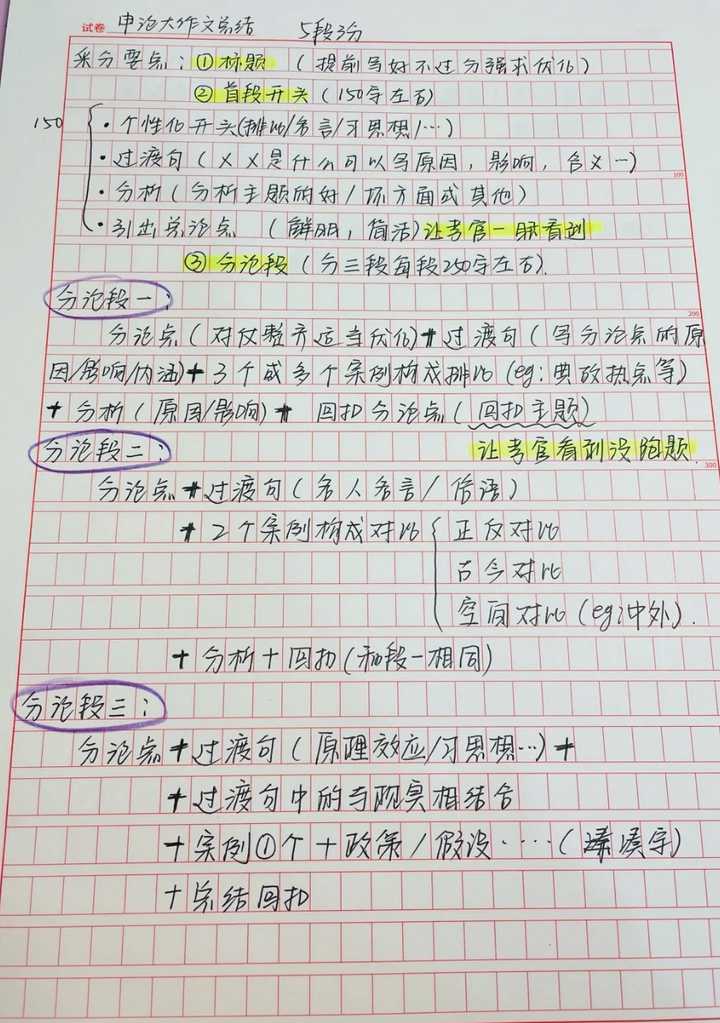 试卷 申论大作文总结 5段3分
采分要点：①标题（提前写好不过分强求优化）
②首段开头（150字左右）
150
·个性化开头(排比/名言/习思想/…)
·过渡句（××是什么可以写原因，影响，含义…）
100
·分析（分析主题的好/坏方面或其他）
·引出总论点（鲜明，简洁)让考官一眼看到
③分论段（分三段每段250字左右).
分论段一：
200
分论点（对仗整齐适当优化)+过渡句（写分论点的原
因/影响/内涵)+3个或多个案例构成排比(eg:典故热点等)
+分析（原因/影响)+回扣分论点（回扣主题）
分论段二：让考官看到没跑题.
300
分论点+过渡句（名人名言/俗语）
+2个案例构成对比{正反对比
古今对比
空间对比(eg:中外).
+分析+回扣(和段一相同)
分论段三：
分论点+过渡句（原理效应/习思想…)+
+过渡句中的与现实相结合
+案例①个+政策/假设····（凑字）
+总结回扣